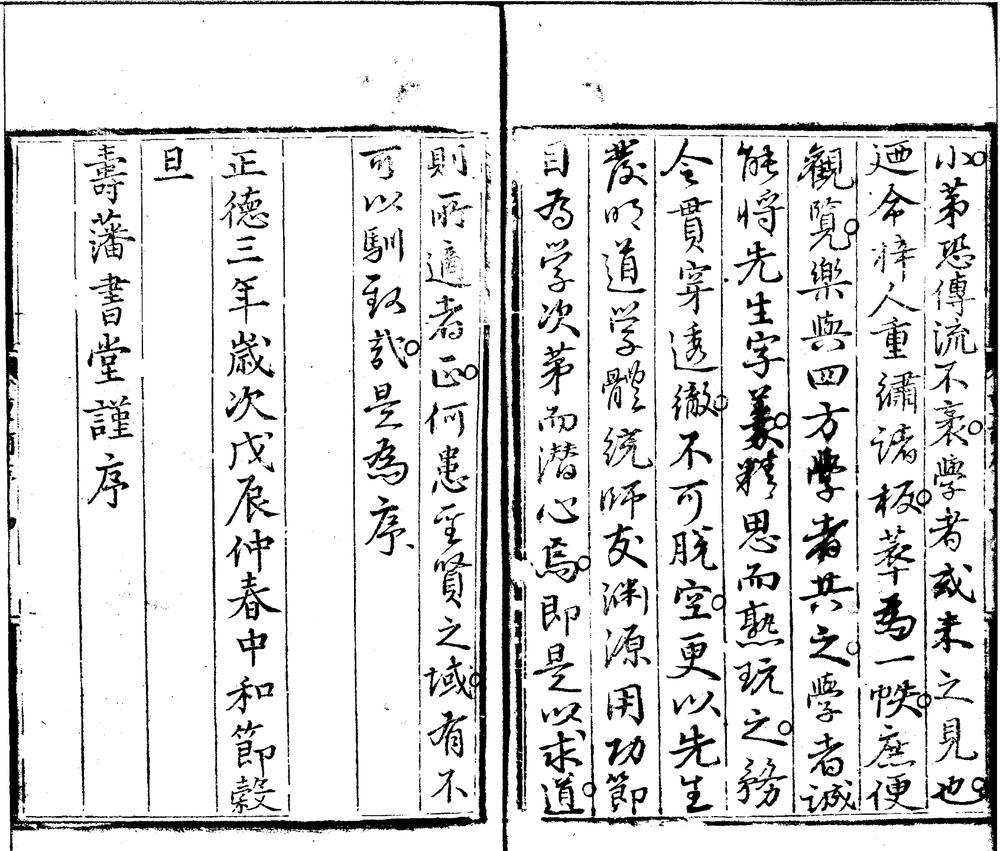 小。第恐傳流不裒。學者或未之見也。
迺命梓人重繡諸板。萃為一帙。庶便
觀覽。樂與四方學者共之。學者誠
能將先生字義。精思而熟玩之。務
令貫穿透徹。不可脫空。更以先生
發明道学體統師友渊源用功節
目為学次第而潜心焉。即是以求道。
則所適者正。何患聖賢之域。有不
可以馴致哉。是為序
正德三年歲次戊辰仲春中和節穀
旦
壽藩書堂謹序